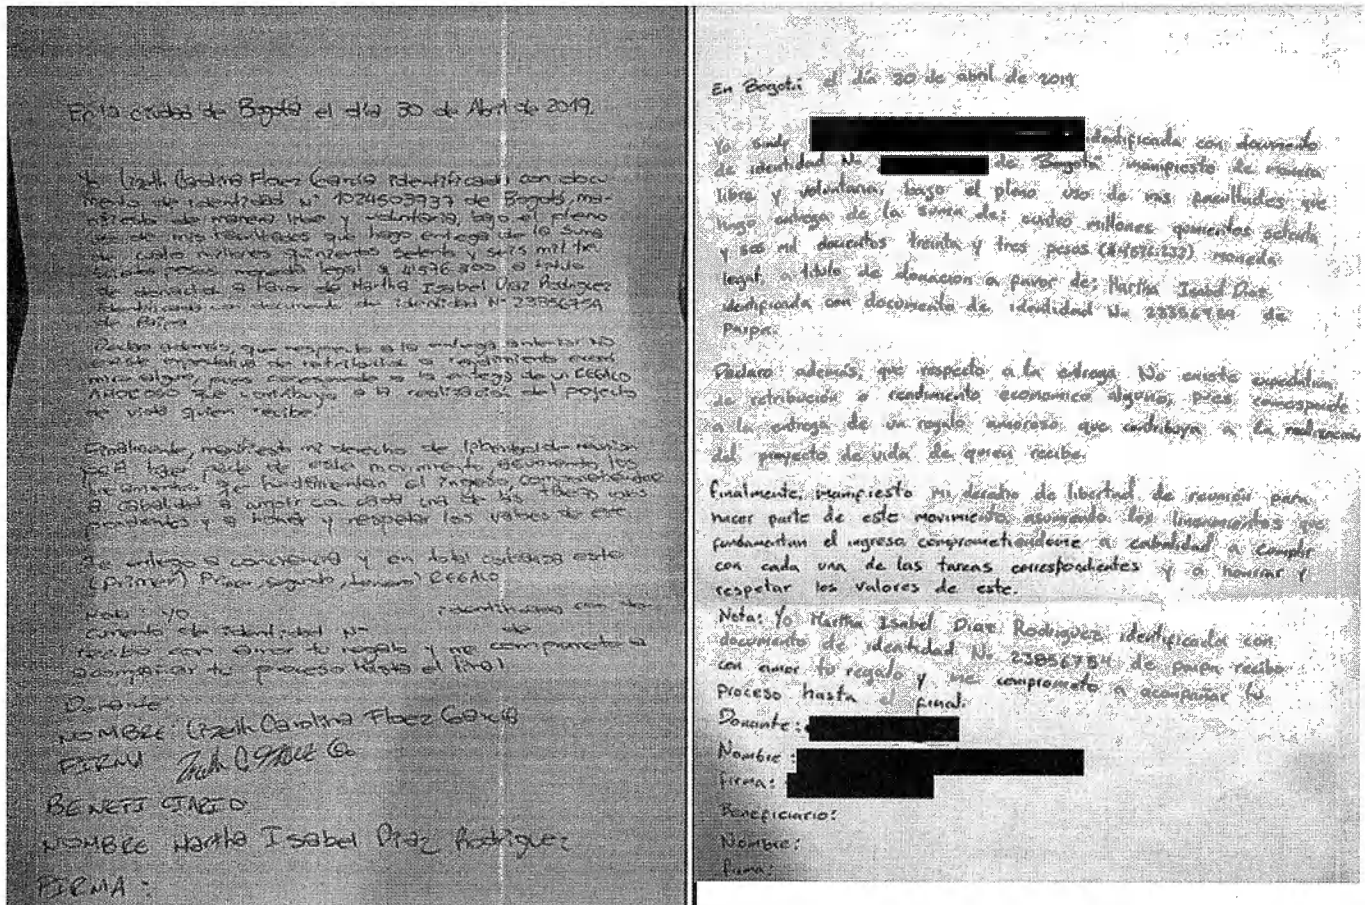 En la ciudad de Bogotá el día 30 de Abril de 2019.
Yo Lizeth Carolina Floez García identificada con docu-
mento de identidad N° 1024503737 de Bogotá, ma-
nifiesto de manera libre y voluntaria, bajo el pleno
uso de mis facultades que hago entrega de la suma
de cuatro millones quinientos setenta y seis mil tre
cientos pesos moneda legal $ 4'576 300 a título
de donación a favor de Martha Isabel Diaz Rodriguez
identificada con documento de identidad N°
de Paipa
Declaro además, que respecto a la entrega anterior NO
existe expectativa de retribución o rendimiento econó
mico alguno, pues corresponde a la entrega de un REGALO
AMOROSO que contribuye a la realización del proyecto
de vida quien recibe.
Finalmente, manifiesto mi derecho de libertad de reunión
para hacer parte de este movimiento asumiendo los
lineamientos que fundamentan el ingreso, comprometiéndome
a cabalidad a cumplir con cada una de las tareas corres
pondientes y a honrar y respetar los valores de este
Se entrego a conciencia y en total confianza este
(primer) Primer, segundo, tercero) REGALO
Nota: Yo identificado con do-
cumento de identidad N° de
recibo con amor tu regalo y me comprometo a
acompañar tu proceso hasta el final
Donante
NOMBRE Lizeth Carolina Floez García
FIRMA
BENEFICIARIO
NOMBRE Martha Isabel Diaz Rodriguez
FIRMA:
En Bogotá el día 30 de abril de 2019
Yo identificada con documento
de identidad No de Bogotá manifiesto de manera
libre y voluntaria, bajo el pleno uso de mis facultades que
hago entrega de la suma de; cuatro millones quinientos setenta
y seis mil docientos treinta y tres pesos ($4576.233) moneda
legal, a titulo de donacion a favor de; Martha Isabel Diaz
identificada con documento de identidad No 23856754 de
Paipa.
Declaro además, que respecto a la entrega No existe expectativa
de retribución o rendimiento economico alguno, pues corresponde
a la entrega de un regalo amoroso que contribuya a la realizacion
del proyecto de vida de quien recibe.
finalmente, manifiesto mi derecho de libertad de reunión para
hacer parte de este movimiento asumiendo los lineamientos que
fundamentan el ingreso comprometiendome a cabalidad a cumplir
con cada una de las tareas correspondientes y a honrar y
respetar los valores de este.
Nota: Yo Martha Isabel Diaz Rodriguez identificada con
documento de identidad No 23856754 de paipa recibo
con amor tu regalo y me comprometo a acompañar tu
proceso hasta el final.
Donante:
Nombre:
firma:
Beneficiario:
Nombre:
firma: